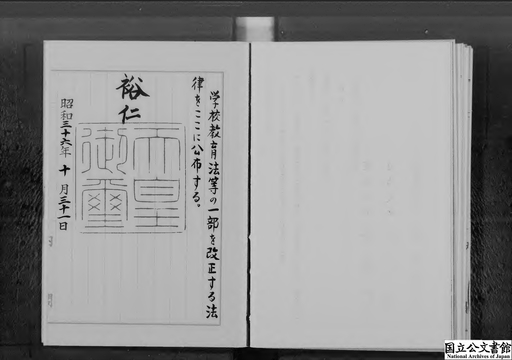 学校教育法等の一部を改正する法
律をここに公布する。
裕仁
天皇
御璽
昭和三十六年十月三十一日
国立公文書館
National Archives of Japan